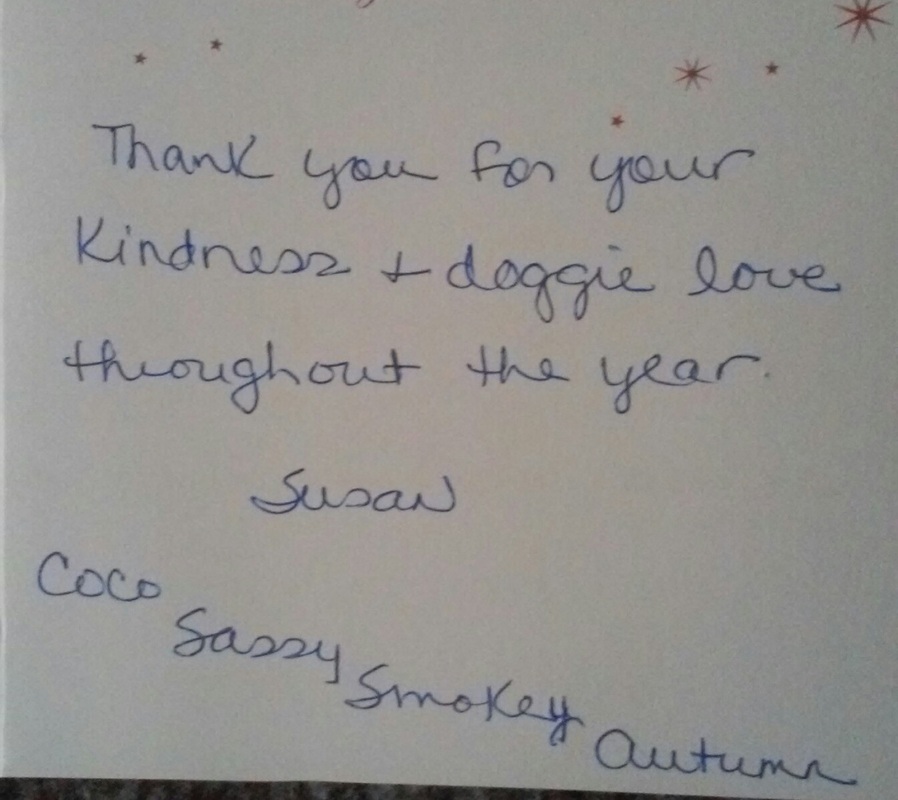 Thank you for your
Kindness + doggie love
throughout the year.
Susan
Coco
Sassy
Smokey
Autumn